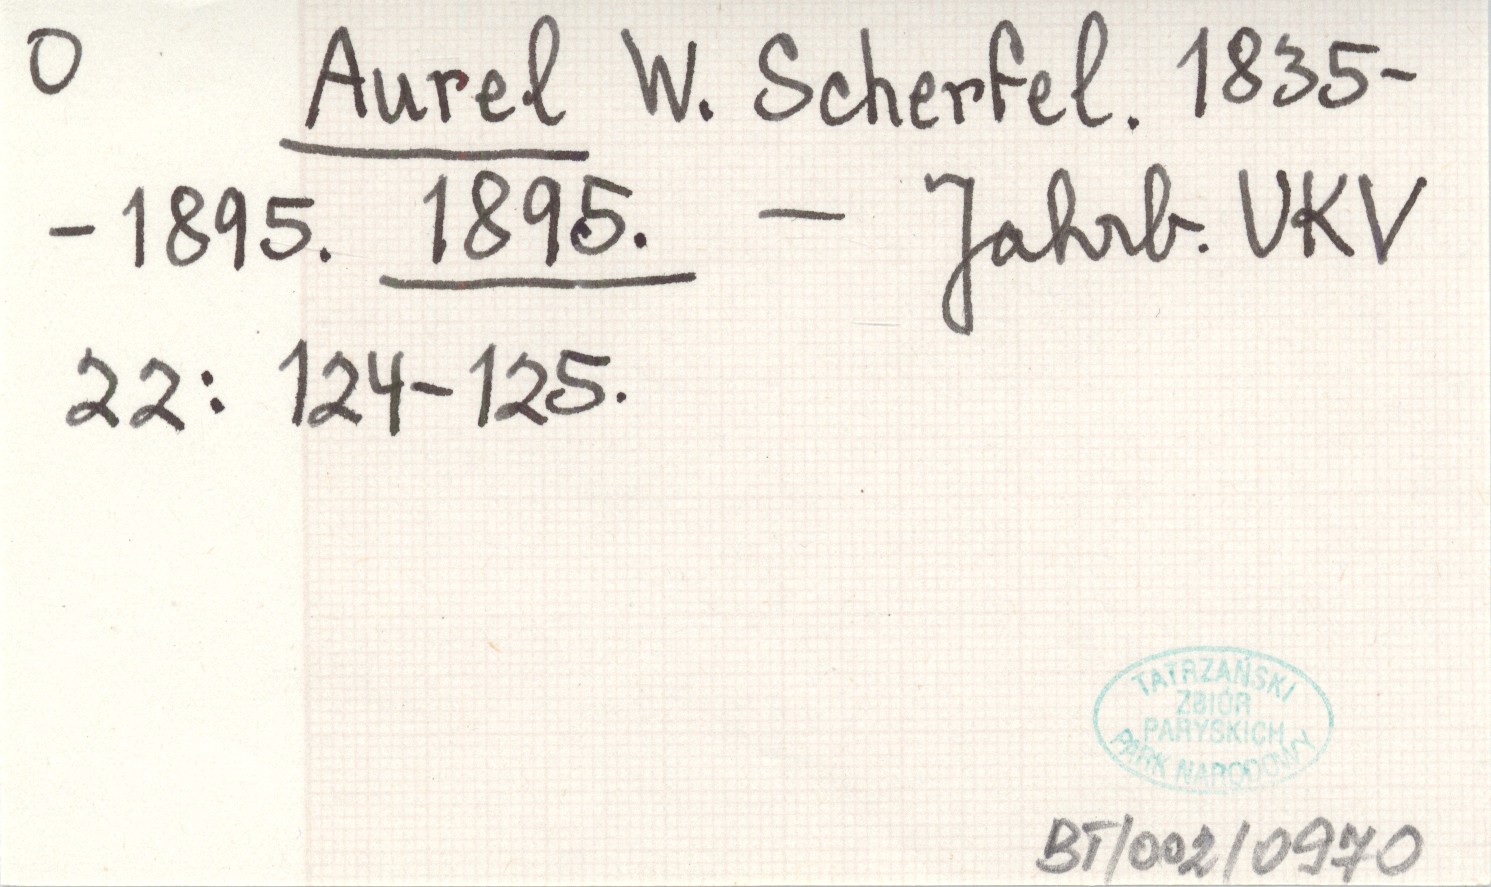 O Aurel W. Scherfel. 1835-
-1895. 1895. — Jahrb. UKV
22: 124-125.
TATRZAŃSKI
ZBIÓR
PARYSKICH
PARK NARODOWY
BT/002/0970